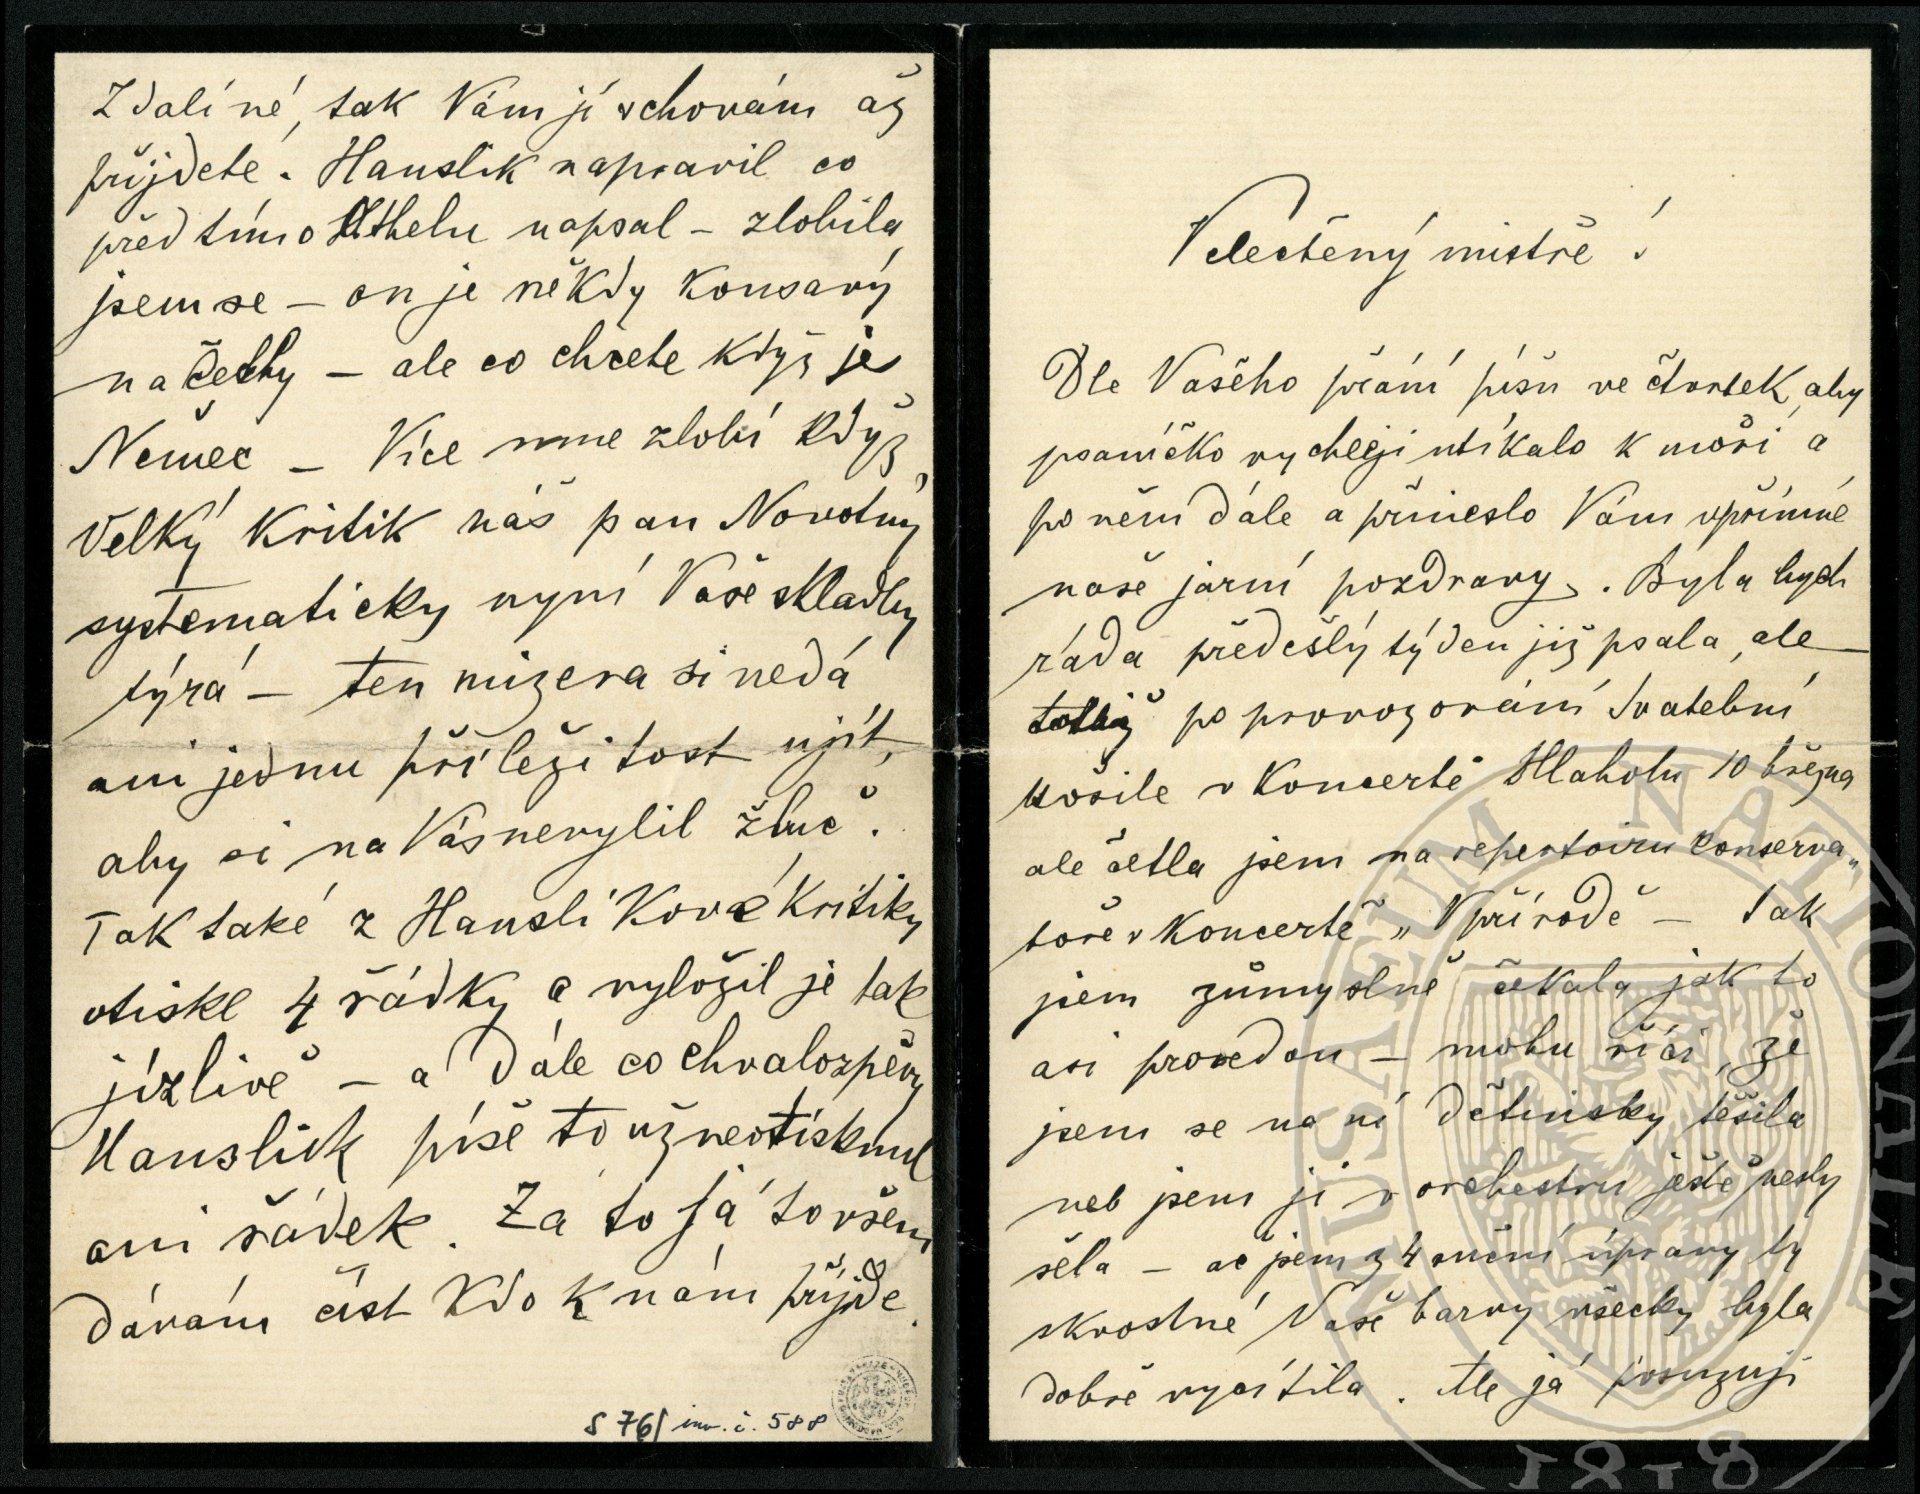 Velectěný mistře!
Dle Vašeho přání píšu ve čtvrtek, aby
psaníčko rychleji utíkalo k moři a
po něm dále a přineslo Vám upřímné
naše jarní pozdravy. Byla bych
ráda předešlý týden již psala, ale
totiž po provozování Svatební
košile v koncertě Hlaholu 10 března
ale četla jsem na repertoiru konserva„
toře v koncertě „V přírodě – tak
jsem zúmyslně čekala jak to
asi provedou – mohu říci, že
jsem se na ní dětinsky těšila
neb jsem ji v orchestru ještě nesly
šela – ač jsem z 4 ruční úpravy ty
skvostné Vaše barvy všecky byla
dobře vycítila. Ale já posuzuji
Zdali né, tak Vám jí schovám až
přijdete. Hanslik napravil co
před tím o Othelu napsal – zlobila
jsem se – on je někdy kousavý
na Čechy – ale co chcete když je
Němec – Více mne zlobí když
velký kritik náš pan Novotný
systematicky nyní Vaše skladby
týrá – ten mizera si nedá
ani jednu příležitost ujít,
aby si na Vás nevylil žluč.
Tak také z Hanslíkové kritiky
otiskl 4 řádky a vyložil je tak
jízlivě – a dále co chvalozpěvy
Hanslick píše to už neotisknul
ani řádek. Za to já to všem
dávám číst kdo k nám přijde.
S 76/ inv. č. 588
MUSAEUM NATIONALE
1818